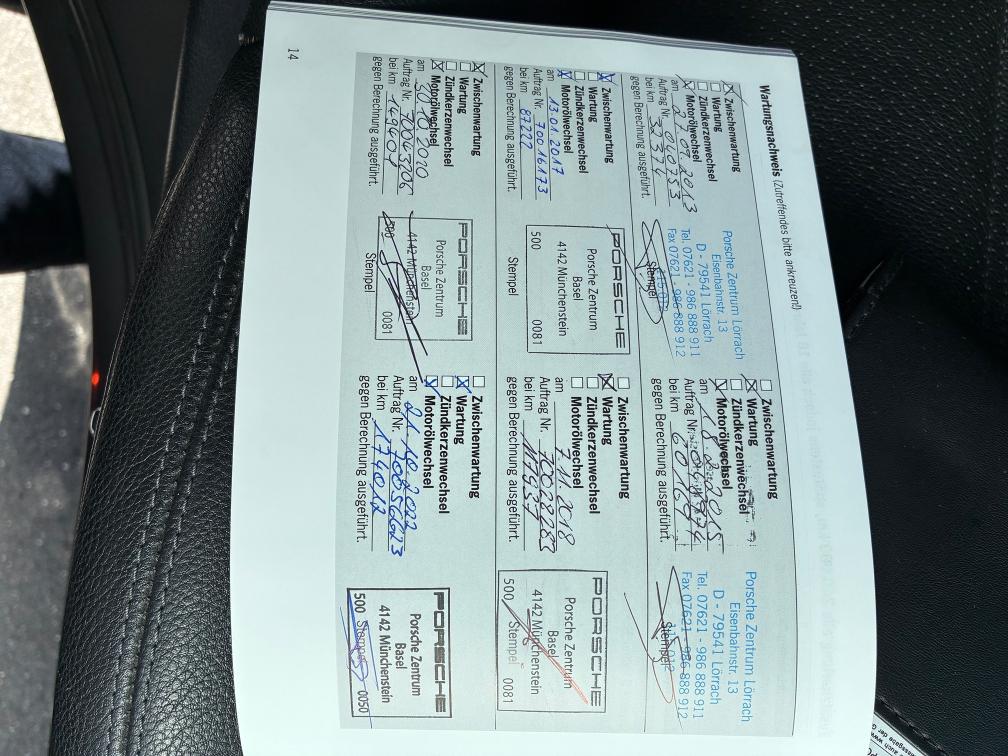 Wartungsnachweis (Zutreffendes bitte ankreuzen!)
Zwischenwartung
Wartung
Zündkerzenwechsel
Motorölwechsel
am 27.09.2013
Auftrag Nr. 040753
bei km 32374
gegen Berechnung ausgeführt.
Porsche Zentrum Lörrach
Eisenbahnstr. 13
D - 79541 Lörrach
Tel. 07621 - 986 888 911
Fax 07621 - 986 888 912
Stempel
Zwischenwartung
Wartung
Zündkerzenwechsel
Motorölwechsel
am
Auftrag Nr.
bei km
gegen Berechnung ausgeführt.
Porsche Zentrum Lörrach
Eisenbahnstr. 13
D - 79541 Lörrach
Tel. 07621 - 986 888 911
Fax 07621 - 986 888 912
Stempel
Zwischenwartung
Wartung
Zündkerzenwechsel
Motorölwechsel
am 13.01.2017
Auftrag Nr. 70016173
bei km 87222
gegen Berechnung ausgeführt.
PORSCHE
Porsche Zentrum
Basel
4142 Münchenstein
500 0081
Stempel
Zwischenwartung
Wartung
Zündkerzenwechsel
Motorölwechsel
am 7.11.2018
Auftrag Nr. 70028283
bei km 117937
gegen Berechnung ausgeführt.
PORSCHE
Porsche Zentrum
Basel
4142 Münchenstein
500 Stempel 0081
Zwischenwartung
Wartung
Zündkerzenwechsel
Motorölwechsel
am
Auftrag Nr. 70043706
bei km 149401
gegen Berechnung ausgeführt.
PORSCHE
Porsche Zentrum
Basel
4142 Münchenstein
500 0081
Stempel
Zwischenwartung
Wartung
Zündkerzenwechsel
Motorölwechsel
am 21.10.2022
Auftrag Nr. 70056623
bei km 174012
gegen Berechnung ausgeführt.
PORSCHE
Porsche Zentrum
Basel
4142 Münchenstein
500 Stempel 0050
14